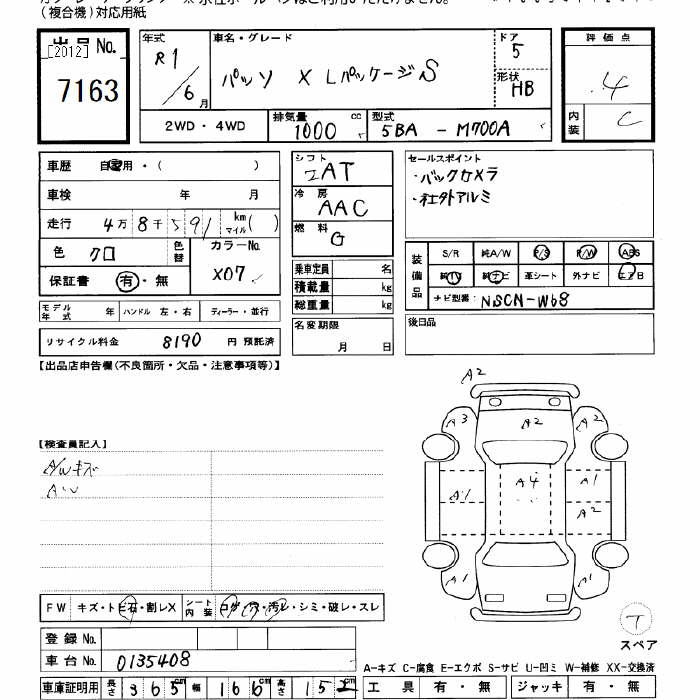 (複合機)対応用紙
出品No.
[2012]
7163
年式
R1/6月
車名・グレード
パッソ X Lパッケージ S
ドア
5
形状
HB
評価点
4
内装
C
2WD・4WD
排気量
1000 cc
型式
5BA - M700A
車歴 自家用・( )
車検 年 月
走行 4万8千591 km マイル( )
色 クロ
色替
カラーNo.
X07
保証書 有・無
モデル年式 年
ハンドル 左・右
ディーラー・並行
リサイクル料金 8190 円 預託済
シフト
AT
冷房
AAC
燃料
G
乗車定員 名
積載量 kg
総重量 kg
名変期限
月 日
セールスポイント
・バックカメラ
・社外アルミ
装備品
S/R 純A/W P/S P/W ABS
純TV 純ナビ 革シート 外ナビ エアB
ナビ型番: NSCN-W68
後日品
【出品店申告欄(不良箇所・欠品・注意事項等)】
【検査員記入】
A/Wキズ
A2
A3 A2 A2
A1 A4 A1
A2
A1 A1
T
スペア
FW キズ・トビ石・割レX
シート内装 コゲ・穴・汚レ・シミ・破レ・スレ
登録No.
車台No. 0135408
車庫証明用 長さ 365cm 幅 166cm 高さ 152
A-キズ C-腐食 E-エクボ S-サビ U-凹ミ W-補修 XX-交換済
工具 有・無 ジャッキ 有・無